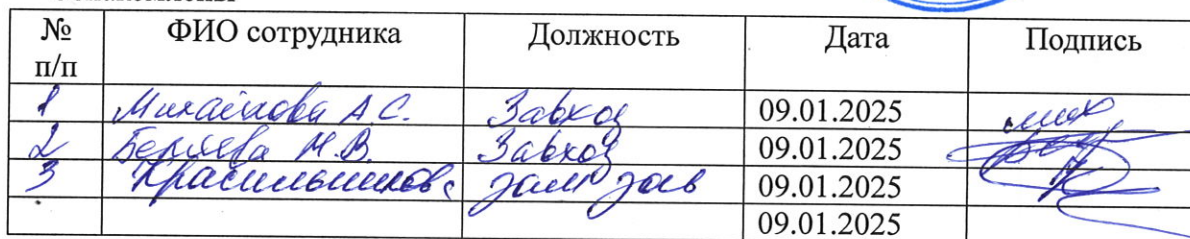 № п/п ФИО сотрудника Должность Дата Подпись
1 Михайлова А.С. Завхоз 09.01.2025
2 Н.В. Завхоз 09.01.2025
3 Красильникова зам зав 09.01.2025
09.01.2025